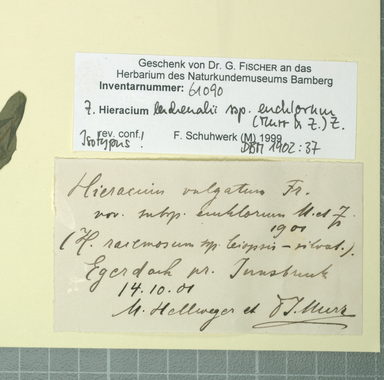 Geschenk von Dr. G. FISCHER an das
Herbarium des Naturkundemuseums Bamberg
Inventarnummer: 61090
Z. Hieracium lachenalii ssp. euchlorum
(Murr & Z.) Z.
rev. conf.! F. Schuhwerk (M) 1999
Isotypus! DBM 1902: 37
Hieracium vulgatum Fr.
nov. subsp. euchlorum M. et Z.
1901
(H. racemosum sp. leiopsis - silvat.).
Egerdach pr. Innsbruck
14.10.01
M. Hellweger et Murr